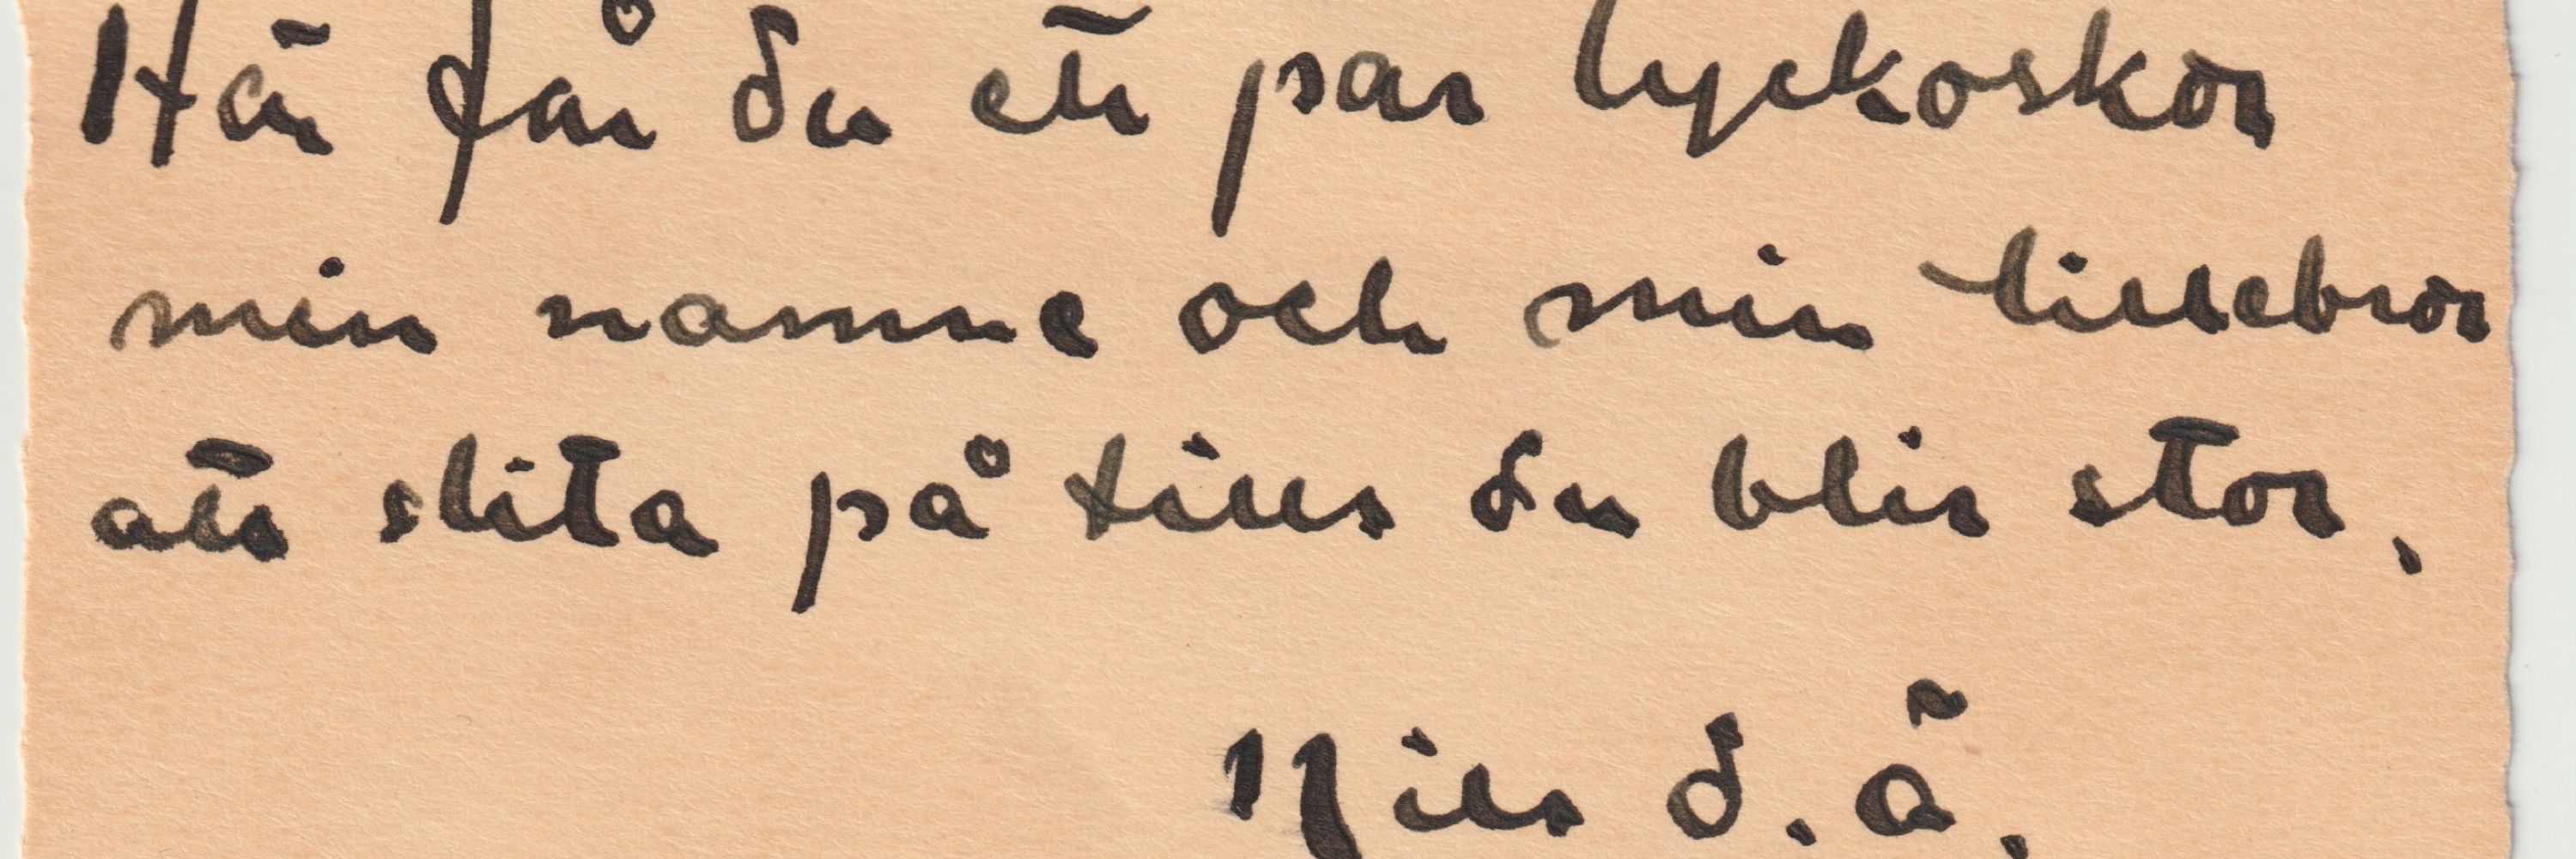 Här får du ett par lyckoskor
min namne och min lillebror
att slita på tills du blir stor.
Nils d.ä.